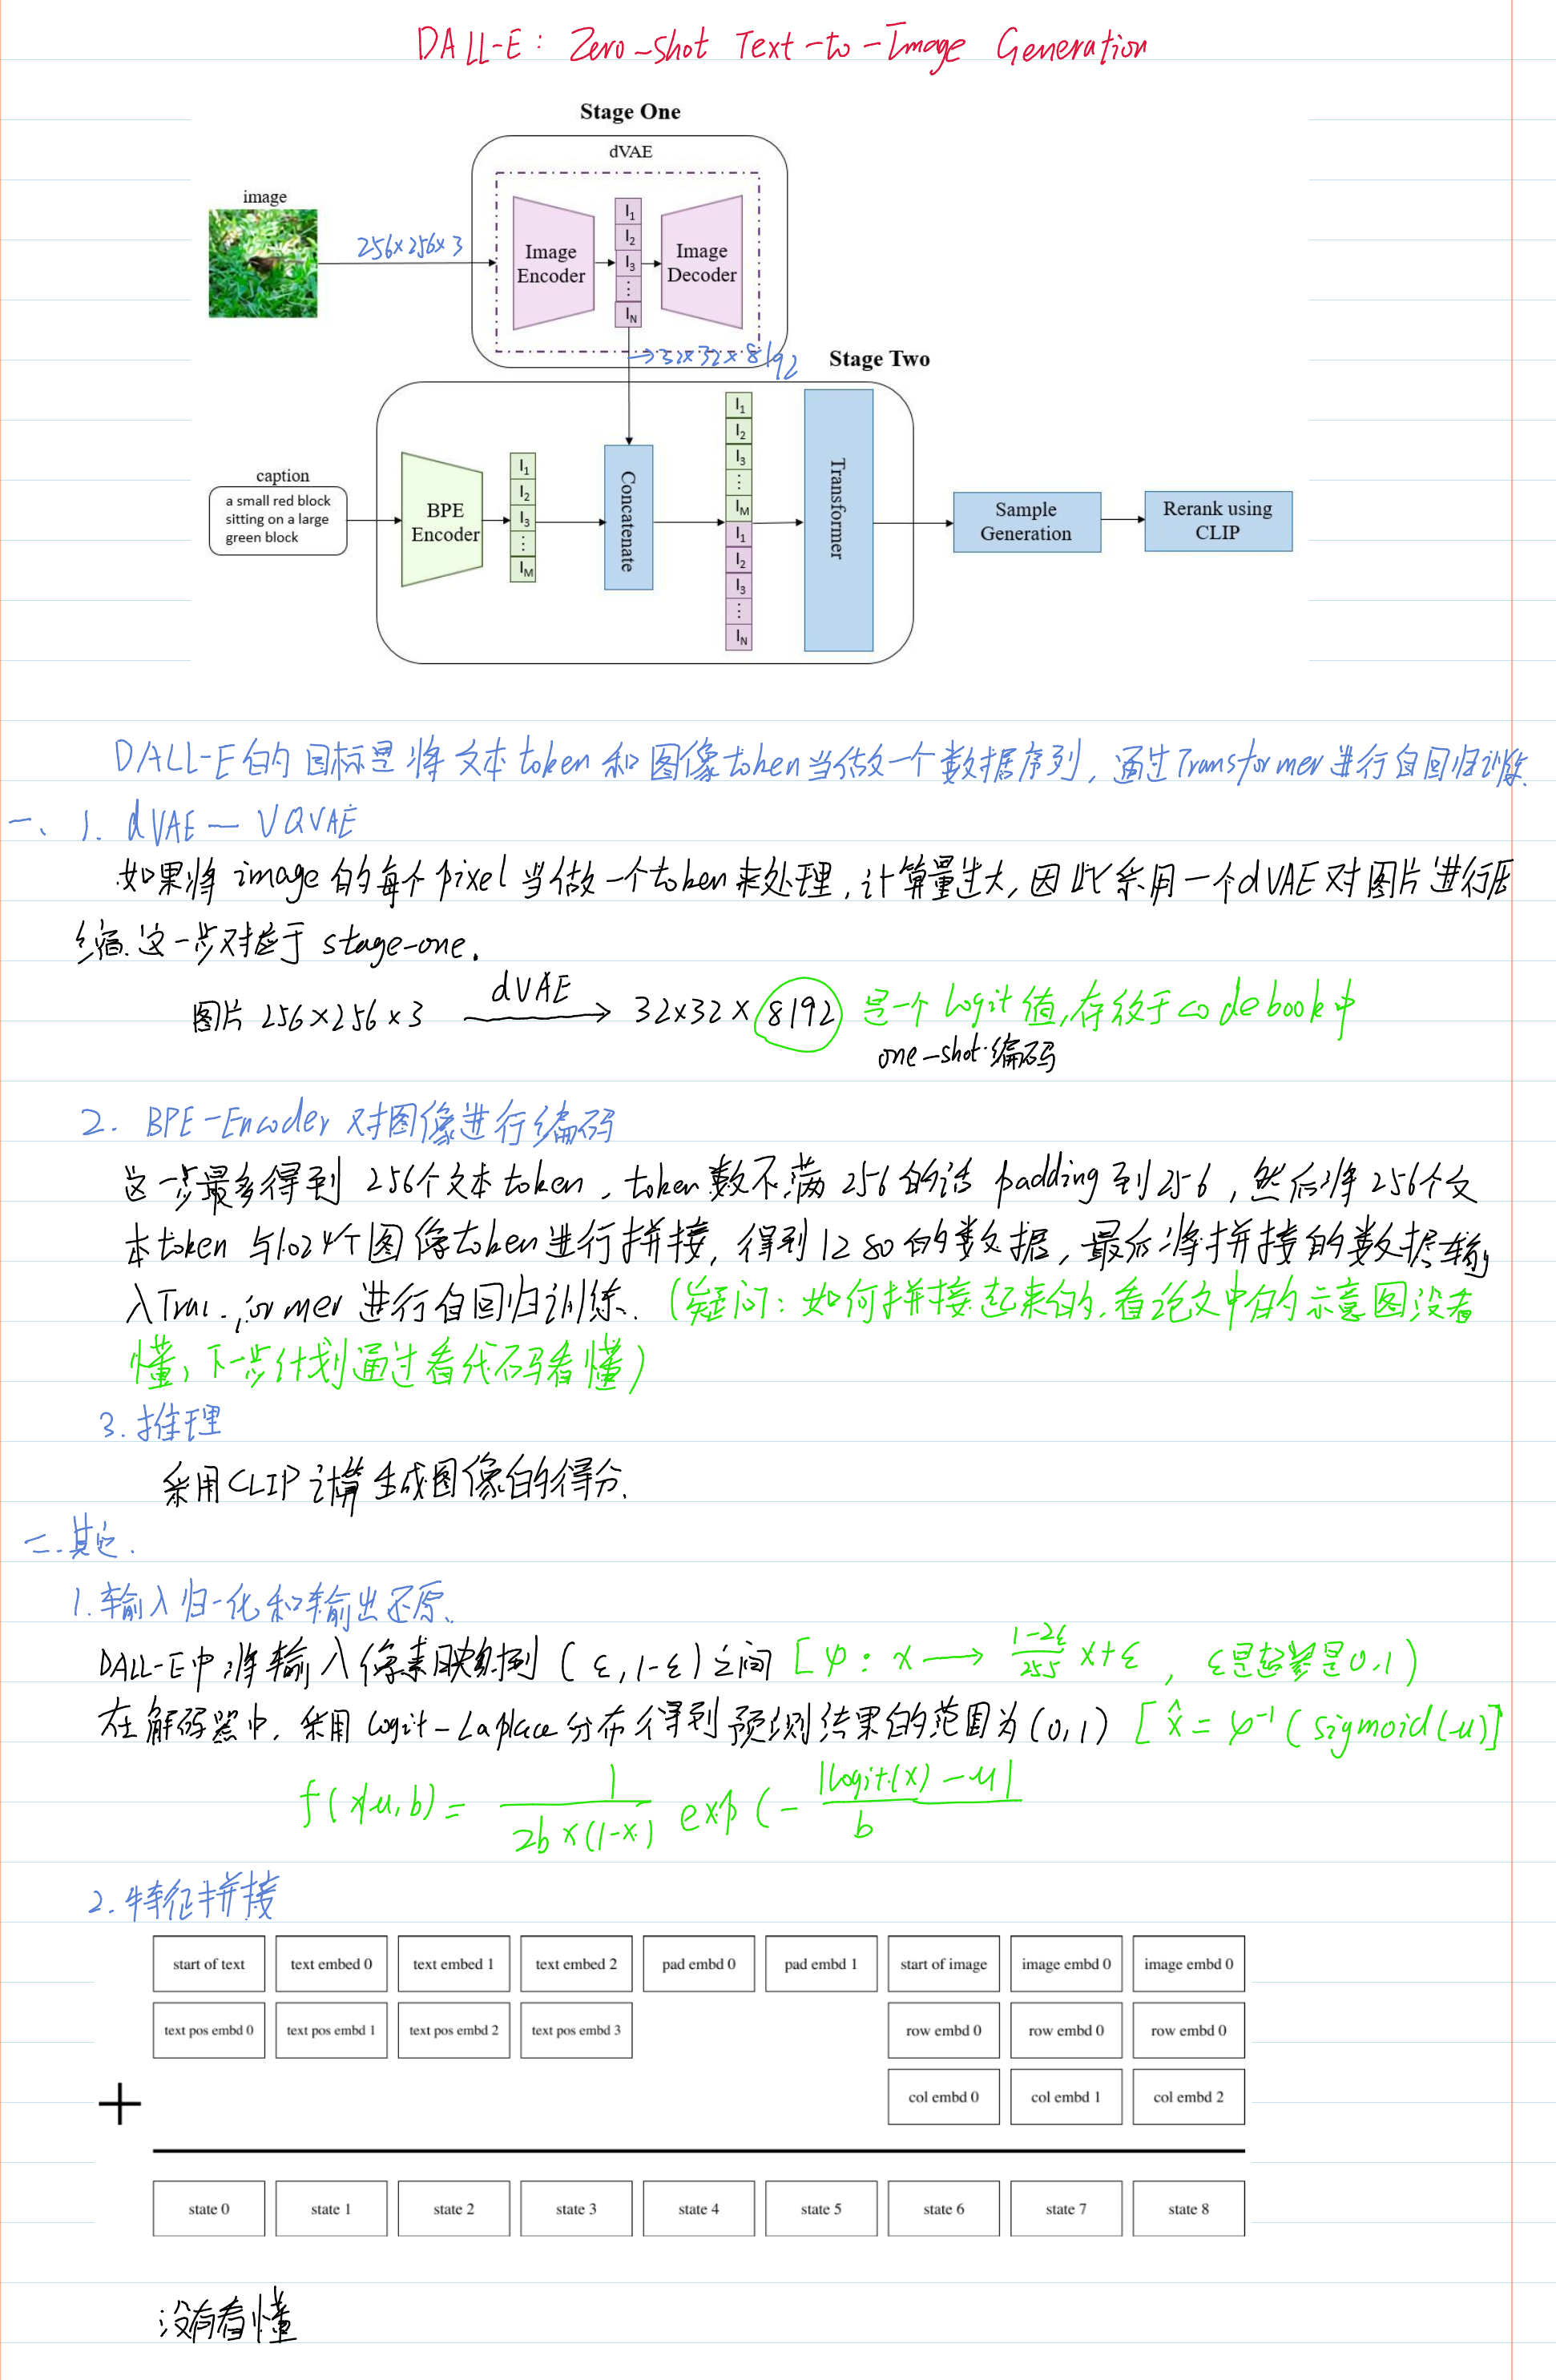 DALL-E: Zero-shot Text-to-Image Generation
Stage One
dVAE
image
256×256×3
Image Encoder
I1
I2
I3
⋮
IN
Image Decoder
→32×32×8192
Stage Two
caption
a small red block
sitting on a large
green block
BPE Encoder
I1
I2
I3
⋮
IM
Concatenate
I1
I2
I3
⋮
IM
I1
I2
I3
⋮
IN
Transformer
Sample Generation
Rerank using CLIP
DALL-E的目标是将文本token和图像token当做一个数据序列,通过Transformer进行自回归训练
一、1. dVAE — VQVAE
如果将image的每个pixel当做一个token来处理,计算量过大,因此采用一个dVAE对图片进行压
缩.这一步对应于stage-one.
图片 256×256×3 dVAE → 32×32×8192 是一个logit值,存放于codebook中
one-shot编码
2. BPE-Encoder对图像进行编码
这一步最多得到256个文本token,token数不满256的话padding到256,然后将256个文
本token与1024个图像token进行拼接,得到1280的数据,最后将拼接的数据输
入Tra former进行自回归训练.(疑问:如何拼接起来的,看论文中的示意图没看
懂,下一步计划通过看代码看懂)
3.推理
采用CLIP计算生成图像的得分.
二.其它.
1.输入归一化和输出还原.
DALL-E中将输入像素映射到(ε,1-ε)之间 [φ: x → 1-2ε/255 x+ε, ε是超参是0.1)
在解码器中,采用logit-Laplace分布得到预测结果的范围为(0,1) [x̂ = φ⁻¹(sigmoid(μ)]
f(x|μ,b) = 1/2bx(1-x) exp(- |logit(x)-μ|/b
2.特征拼接
start of text text embed 0 text embed 1 text embed 2 pad embd 0 pad embd 1 start of image image embd 0 image embd 0
text pos embd 0 text pos embd 1 text pos embd 2 text pos embd 3 row embd 0 row embd 0 row embd 0
+ col embd 0 col embd 1 col embd 2
state 0 state 1 state 2 state 3 state 4 state 5 state 6 state 7 state 8
没有看懂